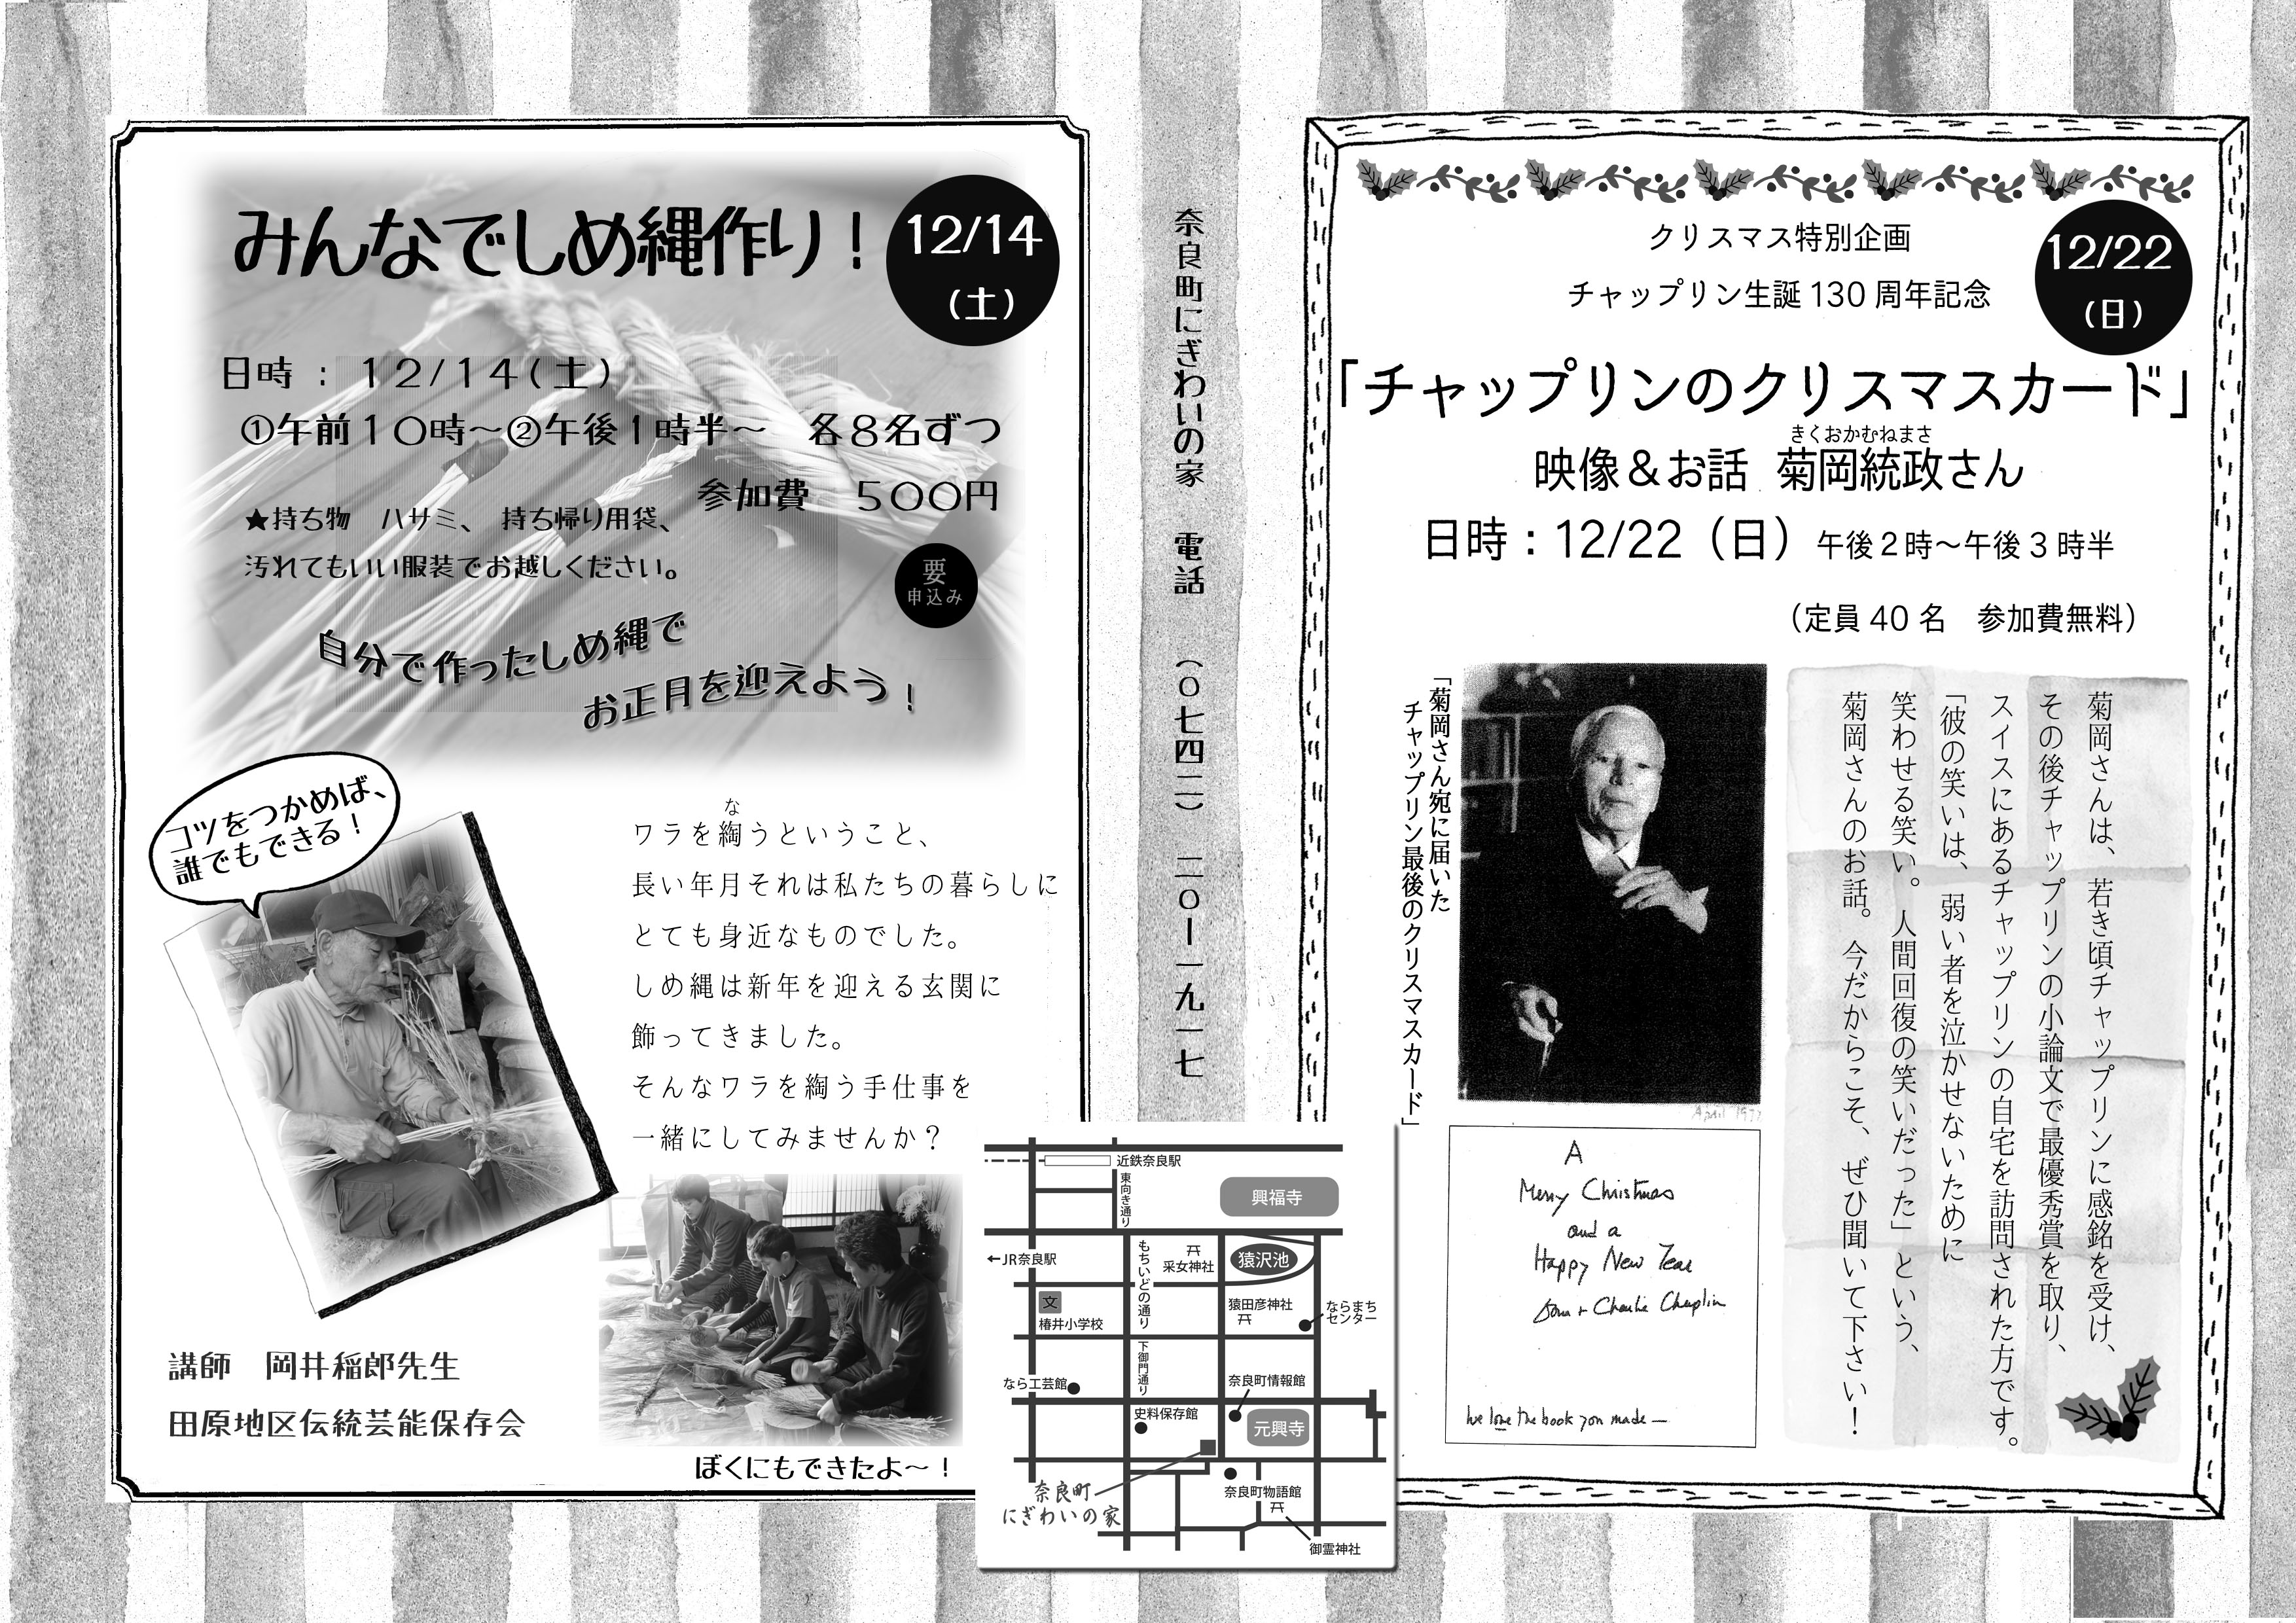 みんなでしめ縄作り！
12/14
（土）
日時：１２/１４(土)
①午前１０時～②午後１時半～　各８名ずつ
参加費　５００円
★持ち物　ハサミ、持ち帰り用袋、
汚れてもいい服装でお越しください。
要
申込み
自分で作ったしめ縄で
お正月を迎えよう！
コツをつかめば、
誰でもできる！
な
ワラを綯うということ、
長い年月それは私たちの暮らしに
とても身近なものでした。
しめ縄は新年を迎える玄関に
飾ってきました。
そんなワラを綯う手仕事を
一緒にしてみませんか？
講師　岡井稲郎先生
田原地区伝統芸能保存会
ぼくにもできたよ～！
奈良町にぎわいの家　電話　（０七四二）二０ー一九一七
近鉄奈良駅
東向き通り
興福寺
←JR奈良駅
もちいどの通り
采女神社
猿沢池
文
椿井小学校
猿田彦神社
ならまち
センター
下御門通り
なら工芸館
奈良町情報館
史料保存館
元興寺
奈良町
にぎわいの家
奈良町物語館
御霊神社
クリスマス特別企画
チャップリン生誕130周年記念
12/22
（日）
「チャップリンのクリスマスカード」
きくおかむねまさ
映像＆お話 菊岡統政さん
日時：12/22（日）午後２時～午後３時半
（定員40名　参加費無料）
菊岡さんは、若き頃チャップリンに感銘を受け、
その後チャップリンの小論文で最優秀賞を取り、
スイスにあるチャップリンの自宅を訪問された方です。
「彼の笑いは、弱い者を泣かせないために
笑わせる笑い。人間回復の笑いだった」という、
菊岡さんのお話。今だからこそ、ぜひ聞いて下さい！
「菊岡さん宛に届いた
チャップリン最後のクリスマスカード」
April 1977
A
Merry Christmas
and a
Happy New Year
Oona + Charlie Chaplin
We love the book you made —